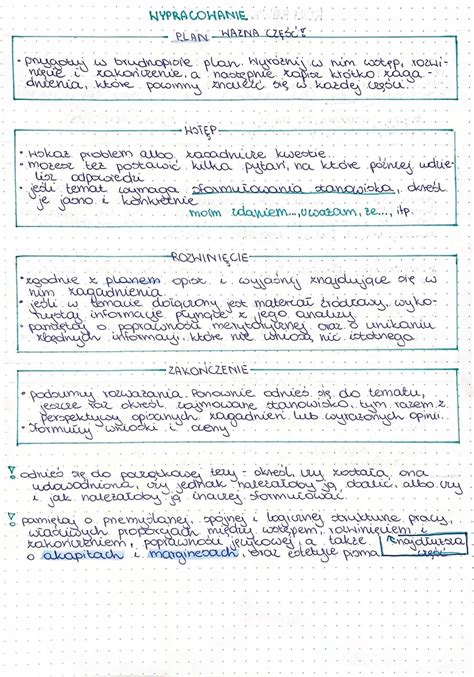 WYPRACOWANIE
PLAN - WAŻNA CZĘŚĆ!
• przygotuj w brudnopisie plan. Wyróżnij w nim wstęp, rozwi-
nięcie i zakończenie, a następnie zapisz krótko zaga-
dnienia, które powinny znaleźć się w każdej części.
WSTĘP
• wskaż problem albo zasadnicze kwestie.
• możesz też postawić kilka pytań, na które później udzie-
lisz odpowiedzi
• jeśli temat wymaga sformułowania stanowiska, określ
je jasno i konkretnie
moim zdaniem..., uważam, że..., itp.
ROZWINIĘCIE
• zgodnie z planem opisz i wyjaśnij znajdujące się w
nim zagadnienia
• jeśli w temacie dołączony jest materiał źródłowy, wyko-
rzystaj informacje płynące z jego analizy
• pamiętaj o poprawności merytorycznej oraz o unikaniu
zbędnych informacji, które nie wnoszą nic istotnego
ZAKOŃCZENIE
• podsumuj rozważania. Ponownie odnieś się do tematu,
jeszcze raz określ zajmowane stanowisko, tym razem z
perspektywy opisanych zagadnień lub wyrażonych opinii.
• sformułuj wnioski i oceny
! odnieś się do początkowej tezy - określ, czy została ona
udowodniona, czy jednak należałoby ją obalić, albo czy
i jak należałoby ją inaczej sformułować
! pamiętaj o przemyślanej, spójnej i logicznej strukturze pracy,
właściwych proporcjach między wstępem, rozwinięciem i
zakończeniem, poprawności językowej, a także najdłuższa
o akapitach i marginesach, oraz estetyce pisma część